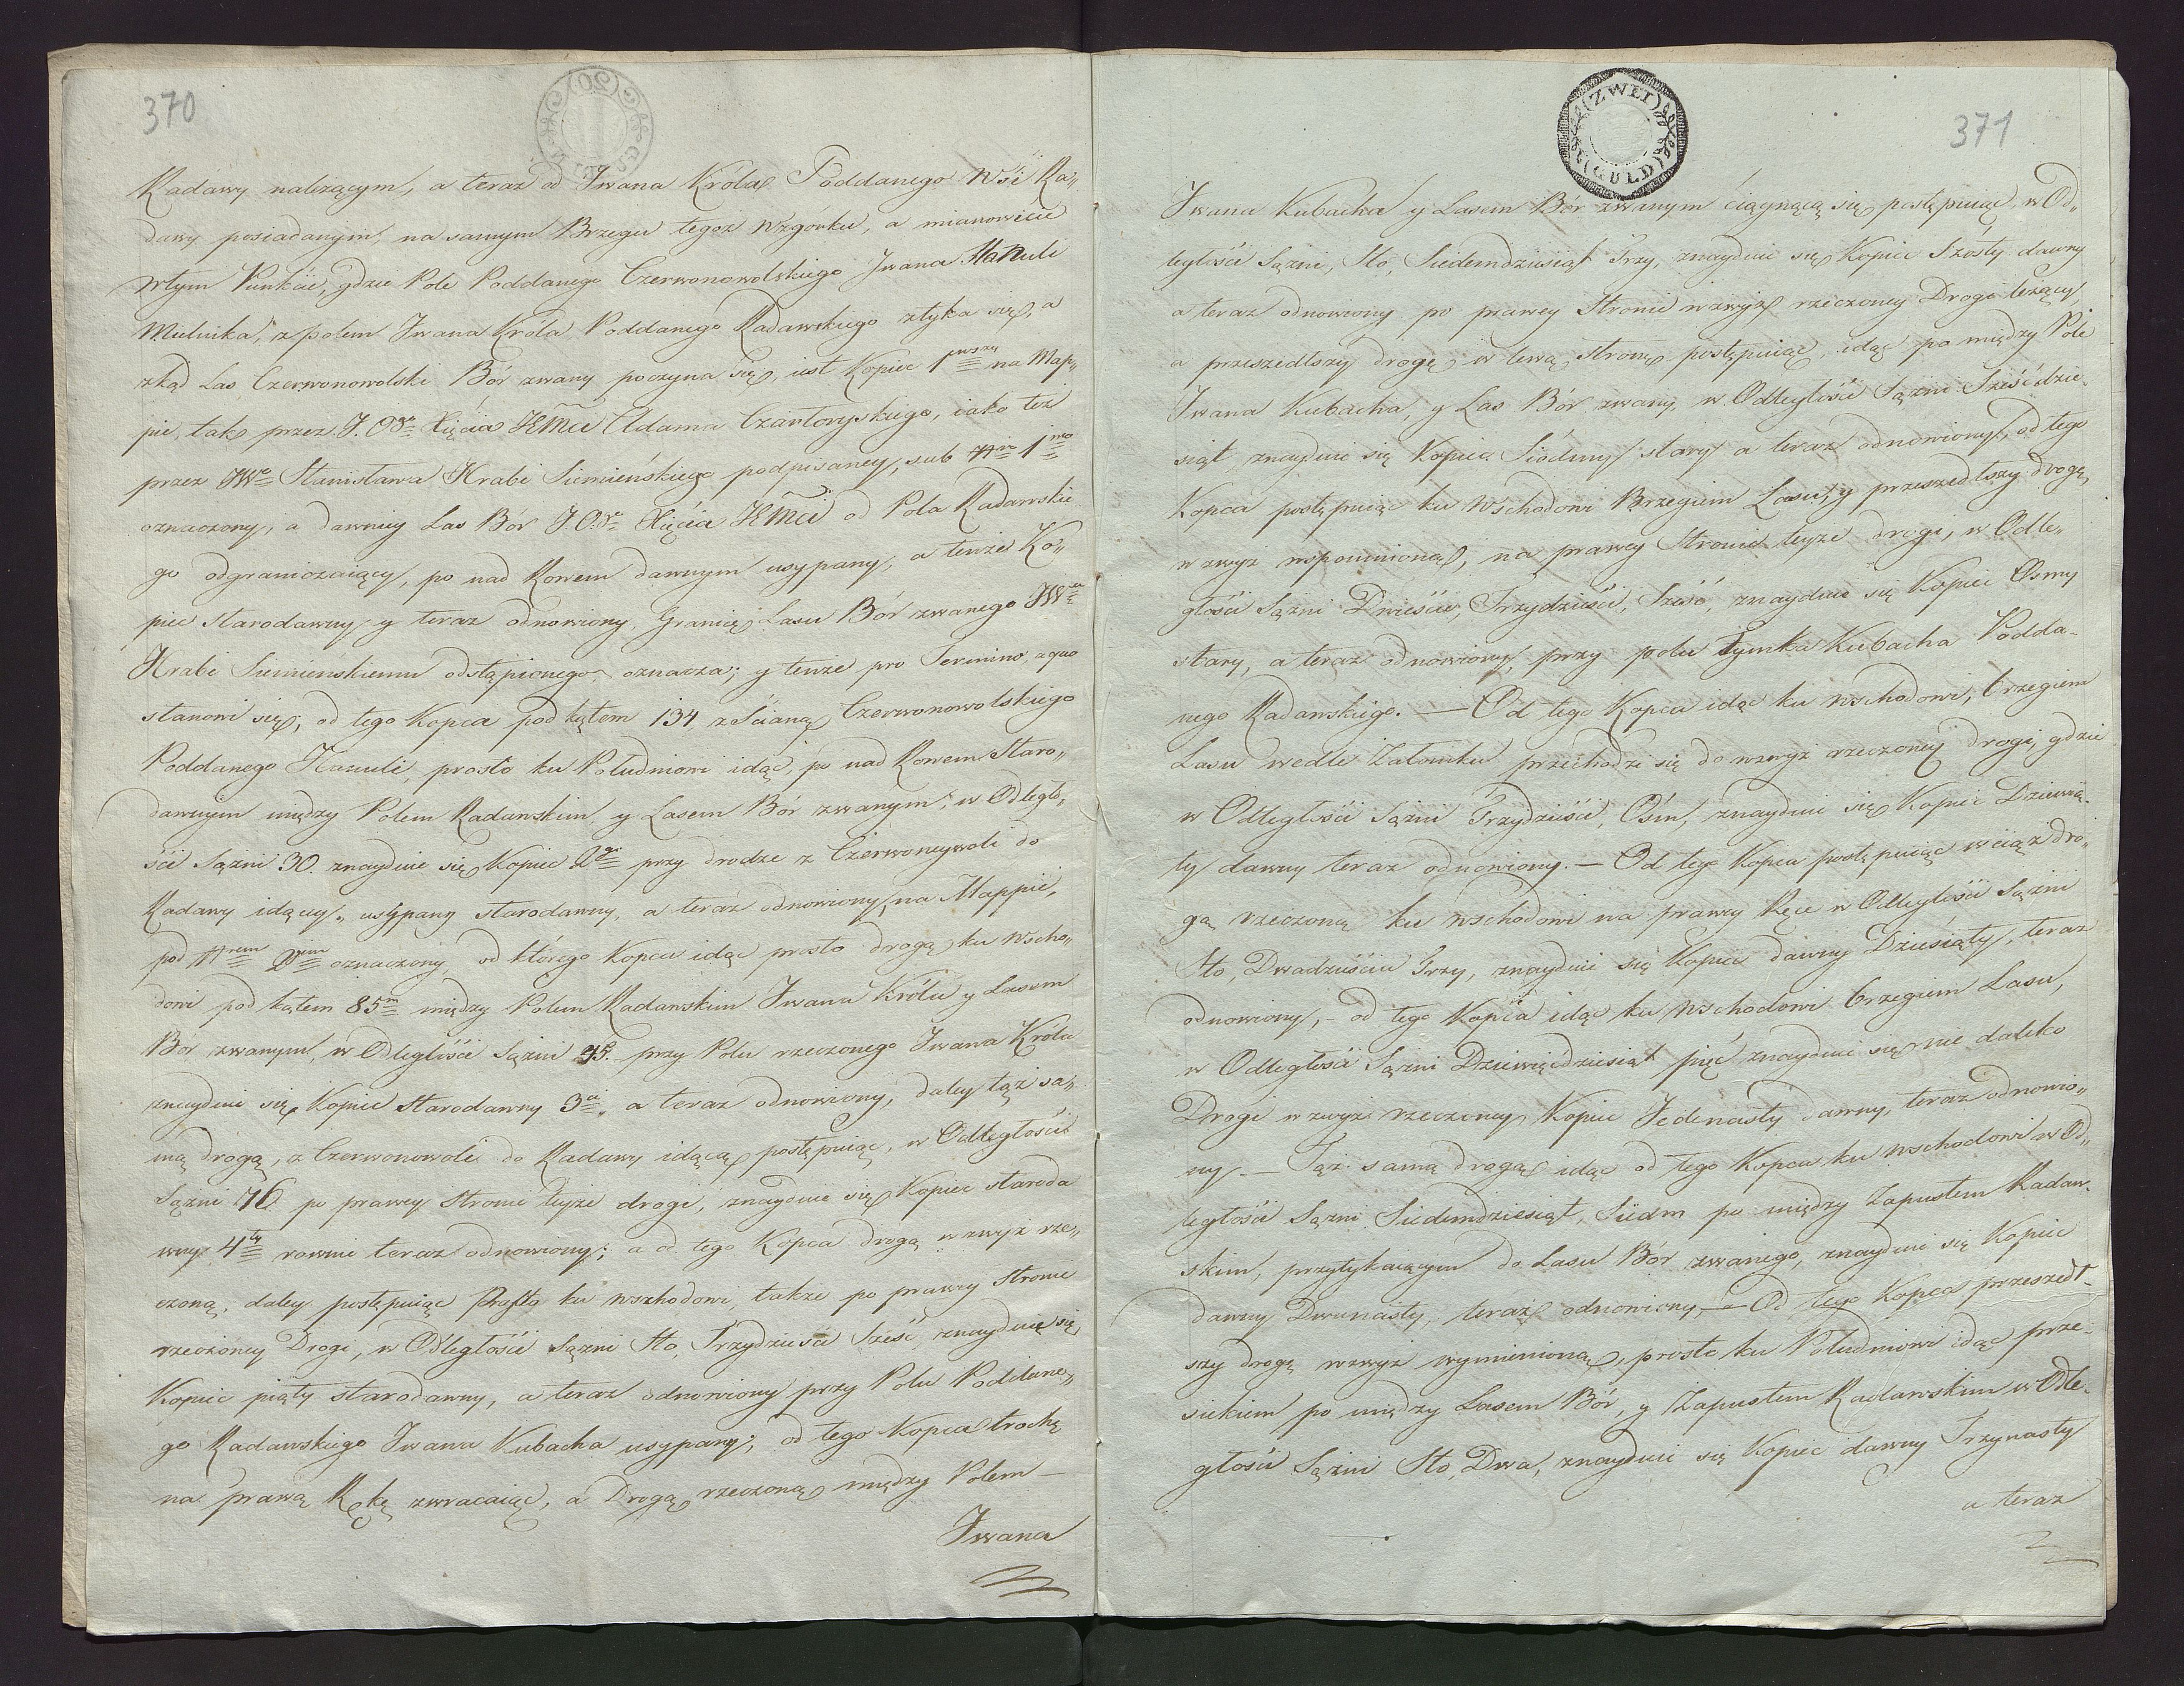 370
Radawy nalezącym, a teraz od Jwana Króla Poddanego Wsi Ra„
dawy posiadanym, na samym Brzegu tegoz Wzgórku, a mianowicie
w tym Punkcie, gdzie Pole Poddanego Czerwonowolskiego Jwana Hanuli
Mielnika, z polem Jwana Króla Poddanego Radawskiego styka się, a
zkąd Las Czerwonowolski Bór zwany poczyna się, iest Kopiec 1wszy na Map„
pie, tak przez J. O. Xięcia JEMci Adama Czartoryskiego, iako też
przez JWo Stanisława Hrabi Siemieńskiego podpisaney, sub Nro 1mo
oznaczony, a dawniey Las Bór J.O. Xięcia JEMci od Pola Radawskie
go odgraniczaiący, po nad Rowem dawnym usypany, a tenże Ko„
piec starodawny y teraz odnowiony, Granicę Lasu Bór zwanego JW
Hrabi Siemieńskiemu odstąpionego oznacza; y tenże pro Termino, a quo
stanowi się; od tego Kopca pod kątem 134 z Scianą Czerwonowolskiego
Poddanego Hanuli, prosto ku Południowi idąc, po nad Rowem Staro„
dawnym między Polem Radawskim, y Lasem Bór zwanym, w Odległo„
ści Sążni 30. znayduie się Kopiec 2gi przy drodze z Czerwoneywoli do
Radawy idącey, usypany starodawny, a teraz odnowiony, na Mappie,
pod Nrem 2 oznaczony, od którego Kopca idąc prosto drogą ku Wscho„
dowi pod kątem 85m między Polem Radawskim Jwana Króla y Lasem
Bór zwanym, w Odległości Sążni 45. przy Polu rzeczonego Jwana Króla
znayduie się Kopiec starodawny 3ci, a teraz odnowiony, daley tąż sa„
mą drogą, z Czerwonowoli do Radawy idącą postępuiąc, w Odległości
Sążni 76 po prawey stronie teyże drogi, znayduie się Kopiec staroda
wny 4ty rownie teraz odnowiony; a od tego Kopca drogą wzwyż rze„
czoną, daley postępuiąc Prosto ku wschodowi, także po prawey Stronie
rzeczoney Drogi, w Odległości Sążni Sto, Trzydzieści Sześć, znayduie się
Kopiec piąty starodawny, a teraz odnowiony przy Polu Poddane„
go Radawskiego Jwana Kubacha usypany; od tego Kopca trochę
na prawą Rękę zwracaiąc, a Drogą rzeczoną między Polem —
Jwana
ZWEI
GULD
371
Jwana Kubacha y Lasem Bór zwanym ciągnącą się postępuiąc, w Od„
ległości Sążni, Sto, Siedemdziesiąt Trzy, znayduie się Kopiec Szosty dawny
a teraz odnowiony po prawey Stronie wzwyż rzeczoney Drogi leżący,
a przeszedłszy drogę, w lewą stronę postępuiąc, idąc po między Pole
Jwana Kubacha, y Las Bór zwany, w Odległości Sążni Sześćdzie„
siąt, znayduie się Kopiec Siódmy stary a teraz odnowiony, od tego
Kopca postępuiąc ku Wschodowi Brzegiem Lasu, y przeszedłszy drogę,
wzwyż wspomnioną, na prawey Stronie teyże drogi, w Odle„
głości Sążni Dwieście, Trzydzieści, Sześć, znayduie się Kopiec Osmy
stary, a teraz odnowiony, przy polu Tymka Kubacha Podda„
nego Radawskiego. — Od tego Kopca idąc ku wschodowi, brzegiem
Lasu wedle Załomku przechodzi się do wzwyż rzeczoney drogi, gdzie
w Odległości Sążni Trzydzieści, Ośm, znayduie się Kopiec Dziewią„
ty dawny teraz odnowiony. — Od tego Kopca postępuiąc wciąż dro„
gą rzeczoną ku wschodowi na prawey Ręce w Odległości Sążni
Sto, Dwadzieścia Trzy, znayduie się Kopiec dawny Dziesiąty, teraz
odnowiony, – od tego Kopca idąc ku Wschodowi brzegiem Lasu,
w Odległości Sążni Dziewięćdziesiąt pięć znayduie się nie daleko
Drogi wzwyż rzeczoney Kopiec Jedenasty dawny, teraz odnowio„
ny. — Tąż samą drogą idąc od tego Kopca ku wschodowi w Od„
ległości Sążni Siedemdziesiąt, Siedm po między Zapustem Radaw„
skim, przytykaiącym do Lasu Bór zwanego, znayduie się Kopiec
dawny Dwunasty, teraz odnowiony, — Od tego Kopca przeszedł„
szy drogę wzwyż wymienioną, prosto ku Południowi idąc prze„
siekiem po między Lasem Bór, y Zapustem Radawskim w Odle„
głości Sążni Sto, Dwa, znayduie się Kopiec dawny Trzynasty
a teraz